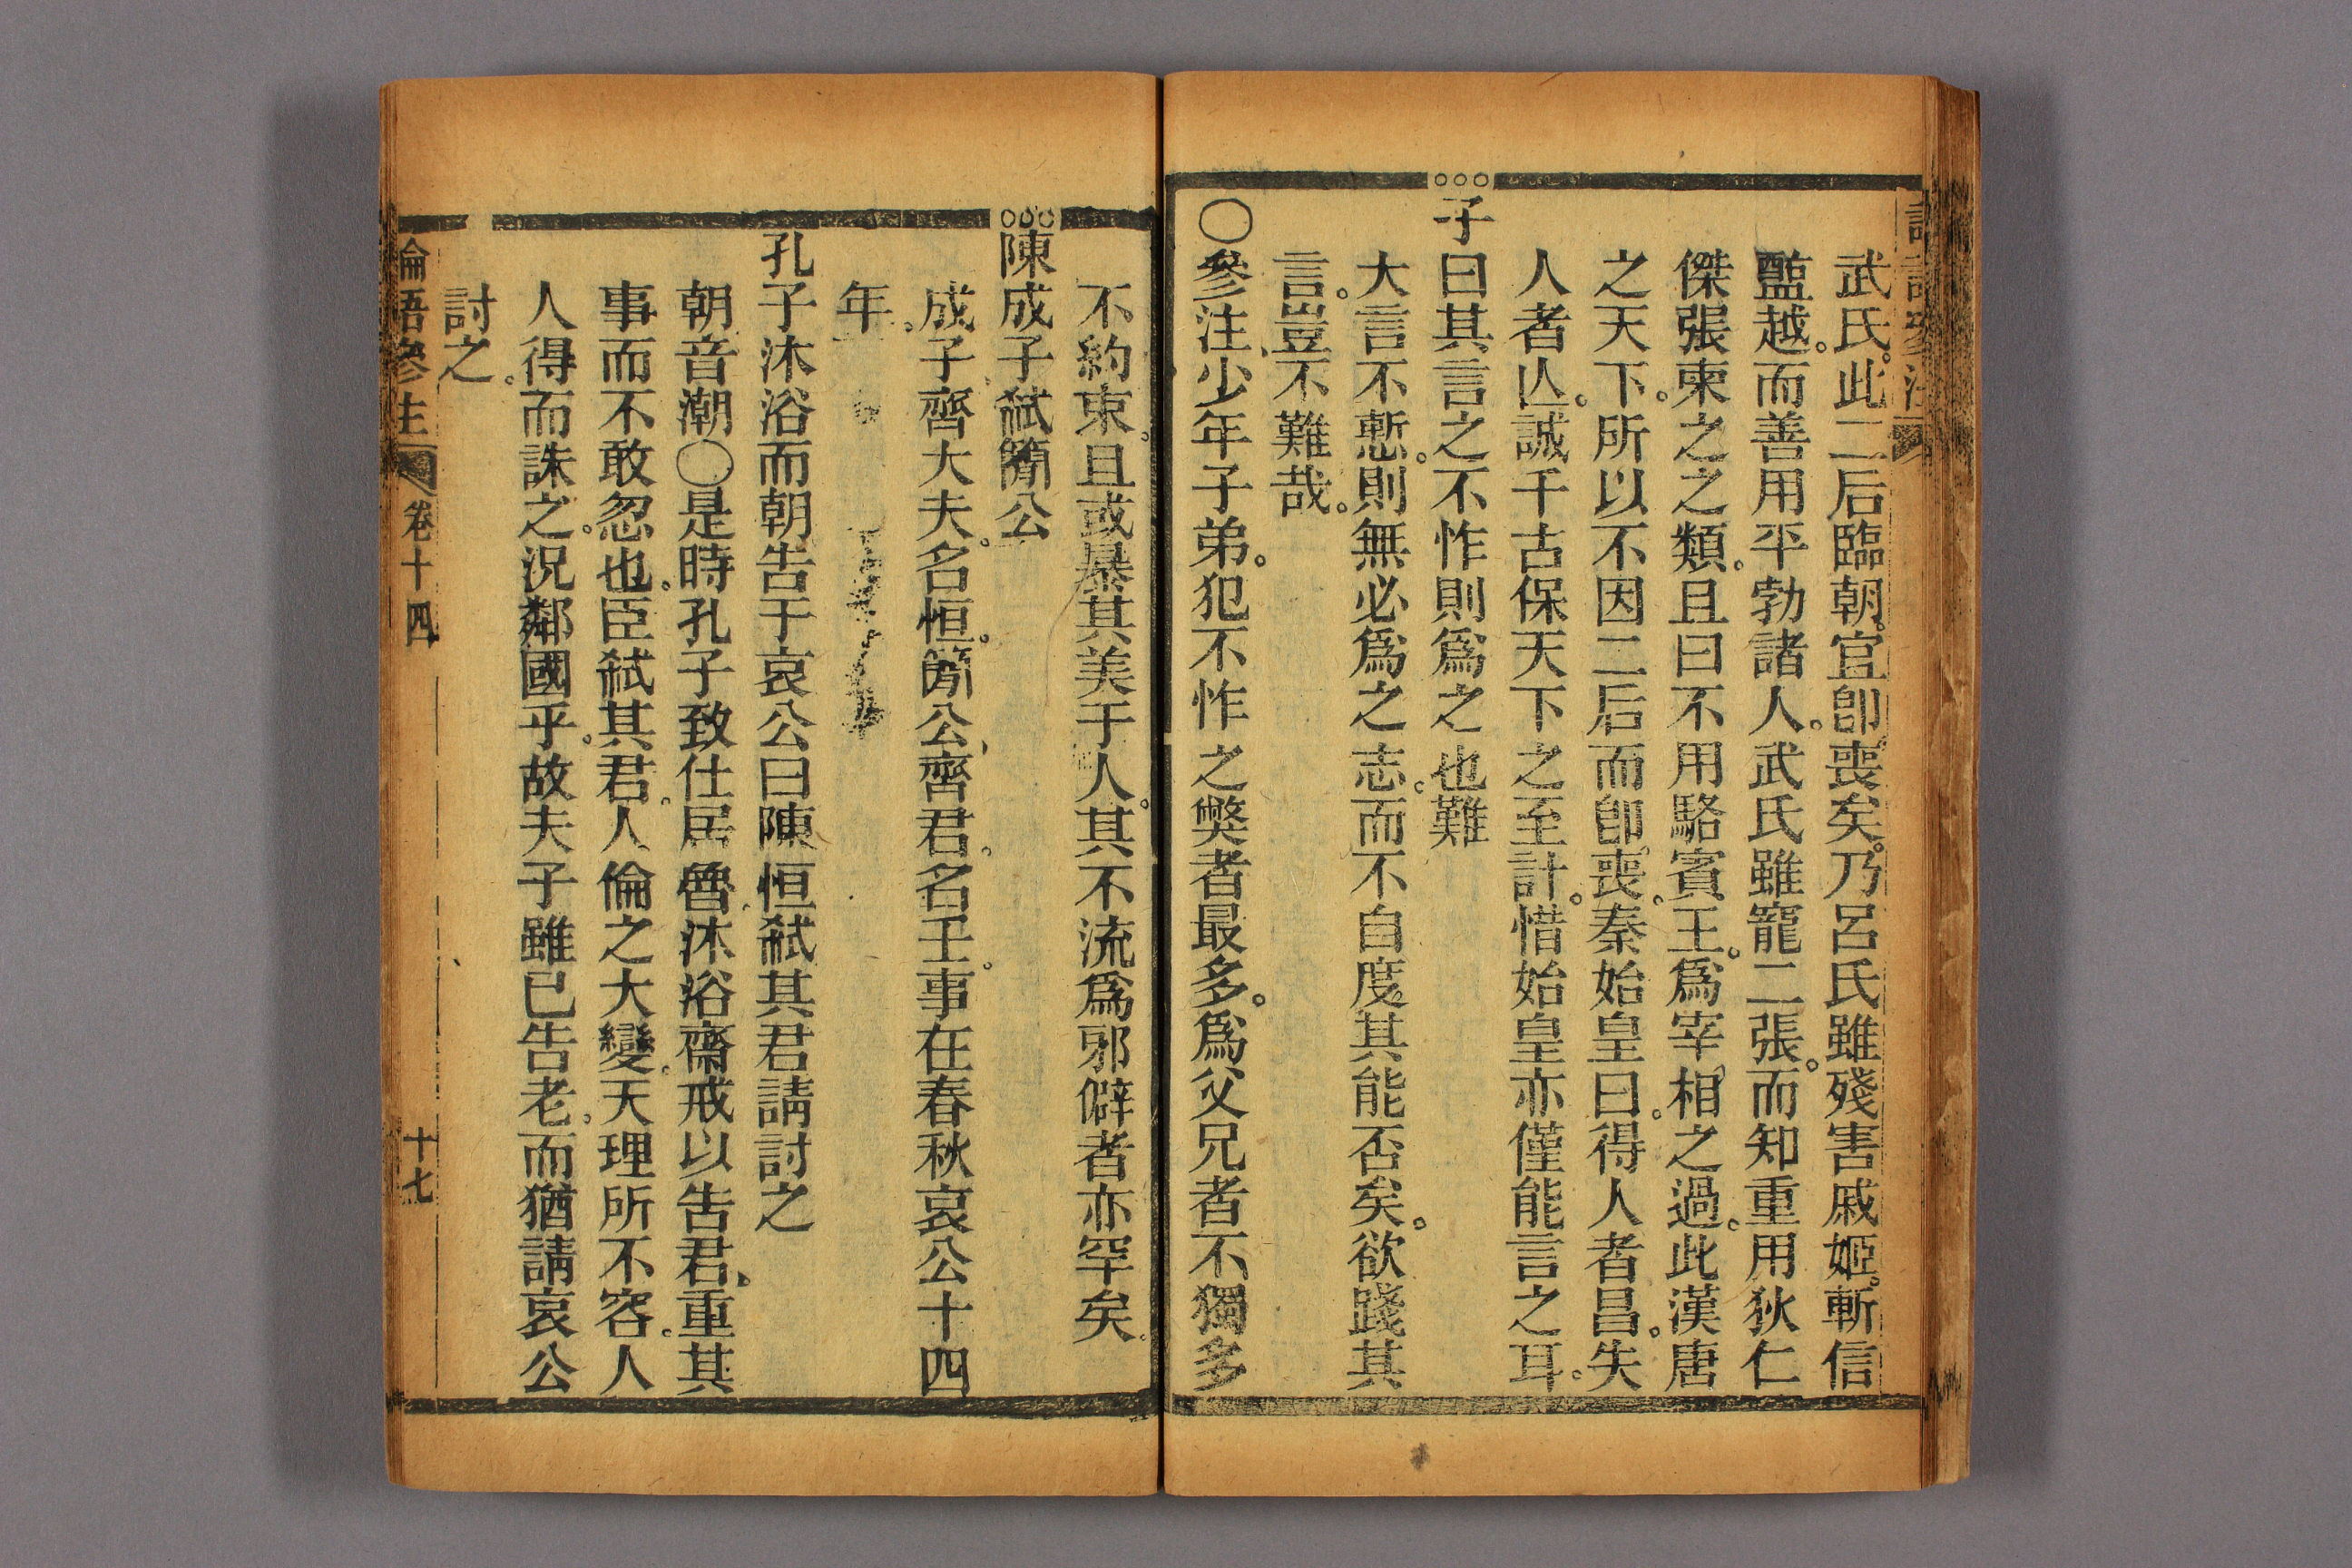 武氏。此二后臨朝。宜卽喪矣。乃呂氏雖殘害戚姬。斬信
醢越。而善用平勃諸人。武氏雖寵二張。而知重用狄仁
傑張柬之之類。且曰不用駱賓王。爲宰相之過。此漢唐
之天下。所以不因二后而卽喪。秦始皇曰。得人者昌。失
人者亾。誠千古保天下之至計。惜始皇亦僅能言之耳。
子曰其言之不怍則爲之也難
大言不慙。則無必爲之志。而不自度其能否矣。欲踐其
言。豈不難哉。
〇參注、少年子弟。犯不怍之獘者最多。爲父兄者不獨多
不約束。且或暴其美于人。其不流爲邪僻者亦罕矣。
陳成子弒簡公
成子、齊大夫。名恒。簡公、齊君。名壬。事在春秋哀公十四
年。
孔子沐浴而朝告于哀公曰陳恒弒其君請討之
朝音潮〇是時孔子致仕居魯、沐浴齋戒以告君、重其
事而不敢忽也。臣弒其君。人倫之大變。天理所不容。人
人得而誅之。況鄰國乎。故夫子雖已告老。而猶請哀公
討之。
論語參注 卷十四 十七